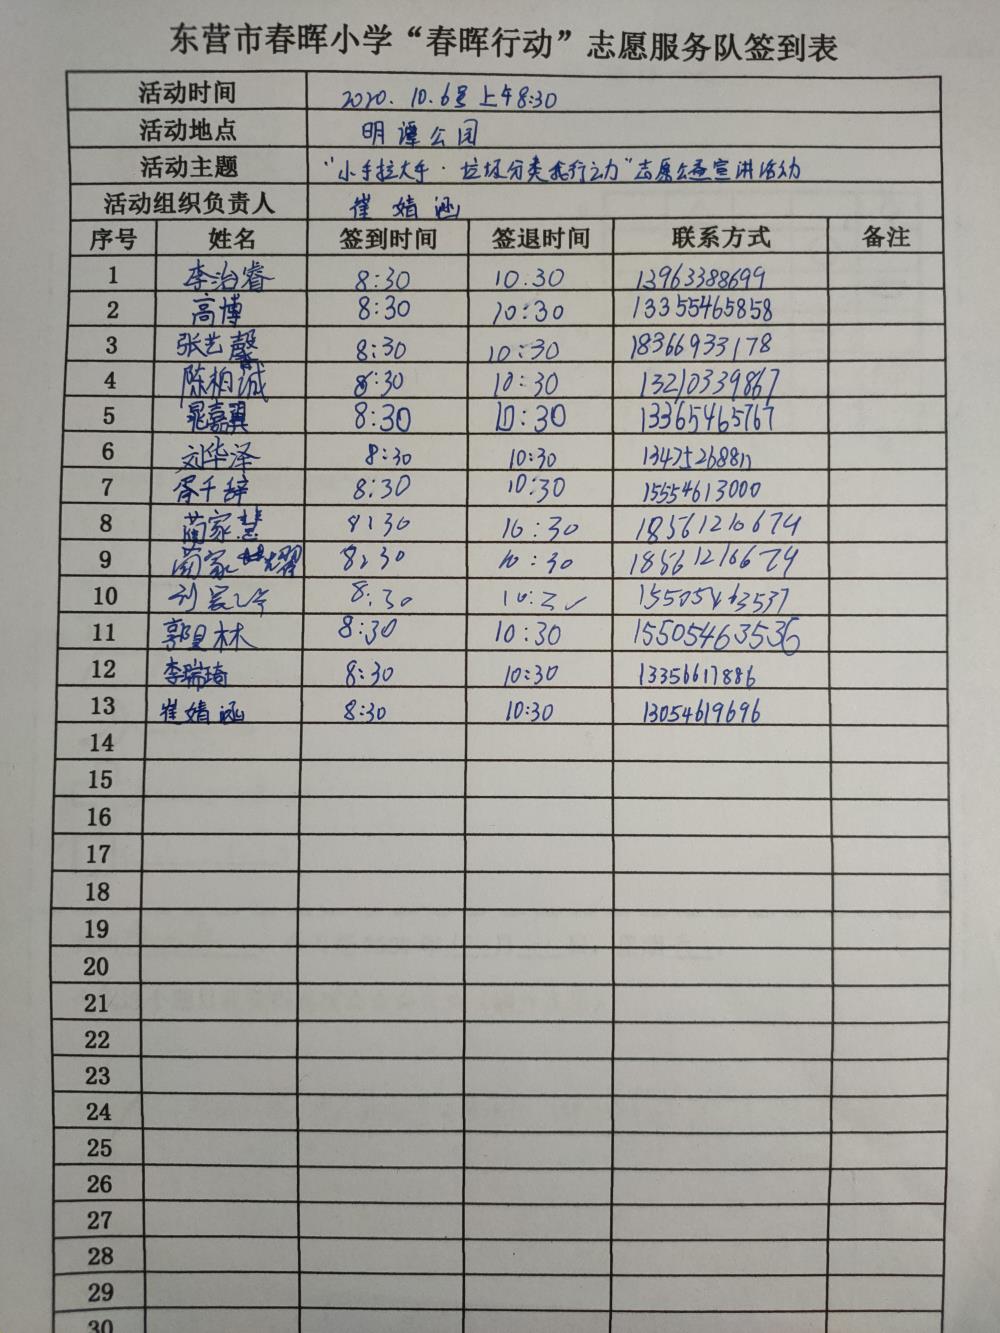 东营市春晖小学“春晖行动”志愿服务队签到表
活动时间 2020.10.6号上午8:30
活动地点 明潭公园
活动主题 “小手拉大手·垃圾分类我行动”志愿公益宣讲活动
活动组织负责人 崔婧涵
序号 姓名 签到时间 签退时间 联系方式 备注
1 李治睿 8:30 10:30 13963388699
2 高博 8:30 10:30 13355465858
3 张艺馨 8:30 10:30 18366933178
4 陈柏诚 8:30 10:30 13210339867
5 晁嘉翼 8:30 10:30 13365465767
6 刘华泽 8:30 10:30
7 胥千辞 8:30 10:30 15554613000
8 蔺家慧 8:30 10:30 18561210674
9 蔺家耀 8:30 10:30 18561210674
10 8:30 15505463537
11 郭昱林 8:30 10:30 15505463536
12 李瑞琦 8:30 10:30 13356617886
13 崔婧涵 8:30 10:30 13054619696
14
15
16
17
18
19
20
21
22
23
24
25
26
27
28
29
30